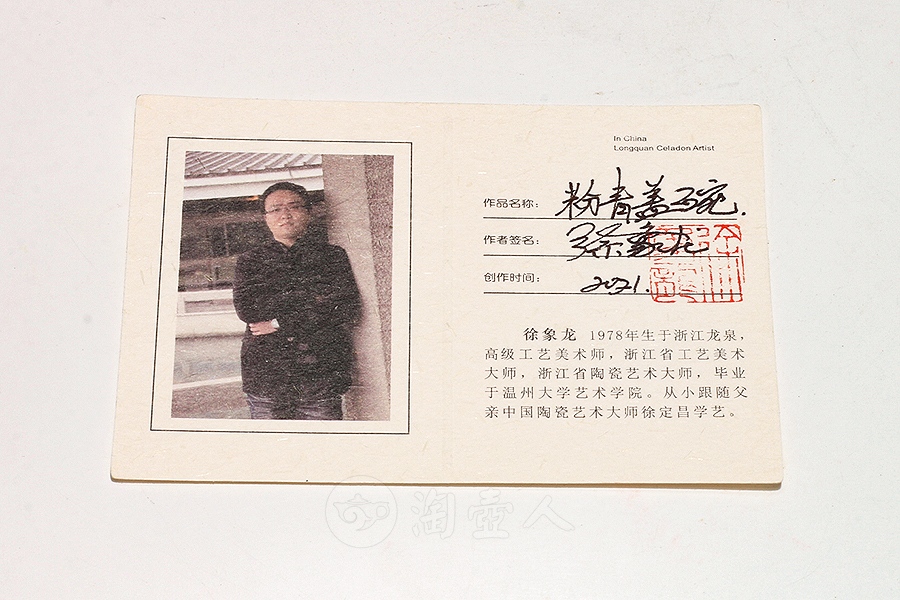 In China
Longquan Celadon Artist
作品名称：粉青盖碗.
作者签名：徐象龙
创作时间：2021.
徐象龙 1978年生于浙江龙泉，
高级工艺美术师，浙江省工艺美术
大师，浙江省陶瓷艺术大师，毕业
于温州大学艺术学院。从小跟随父
亲中国陶瓷艺术大师徐定昌学艺。
淘壶人